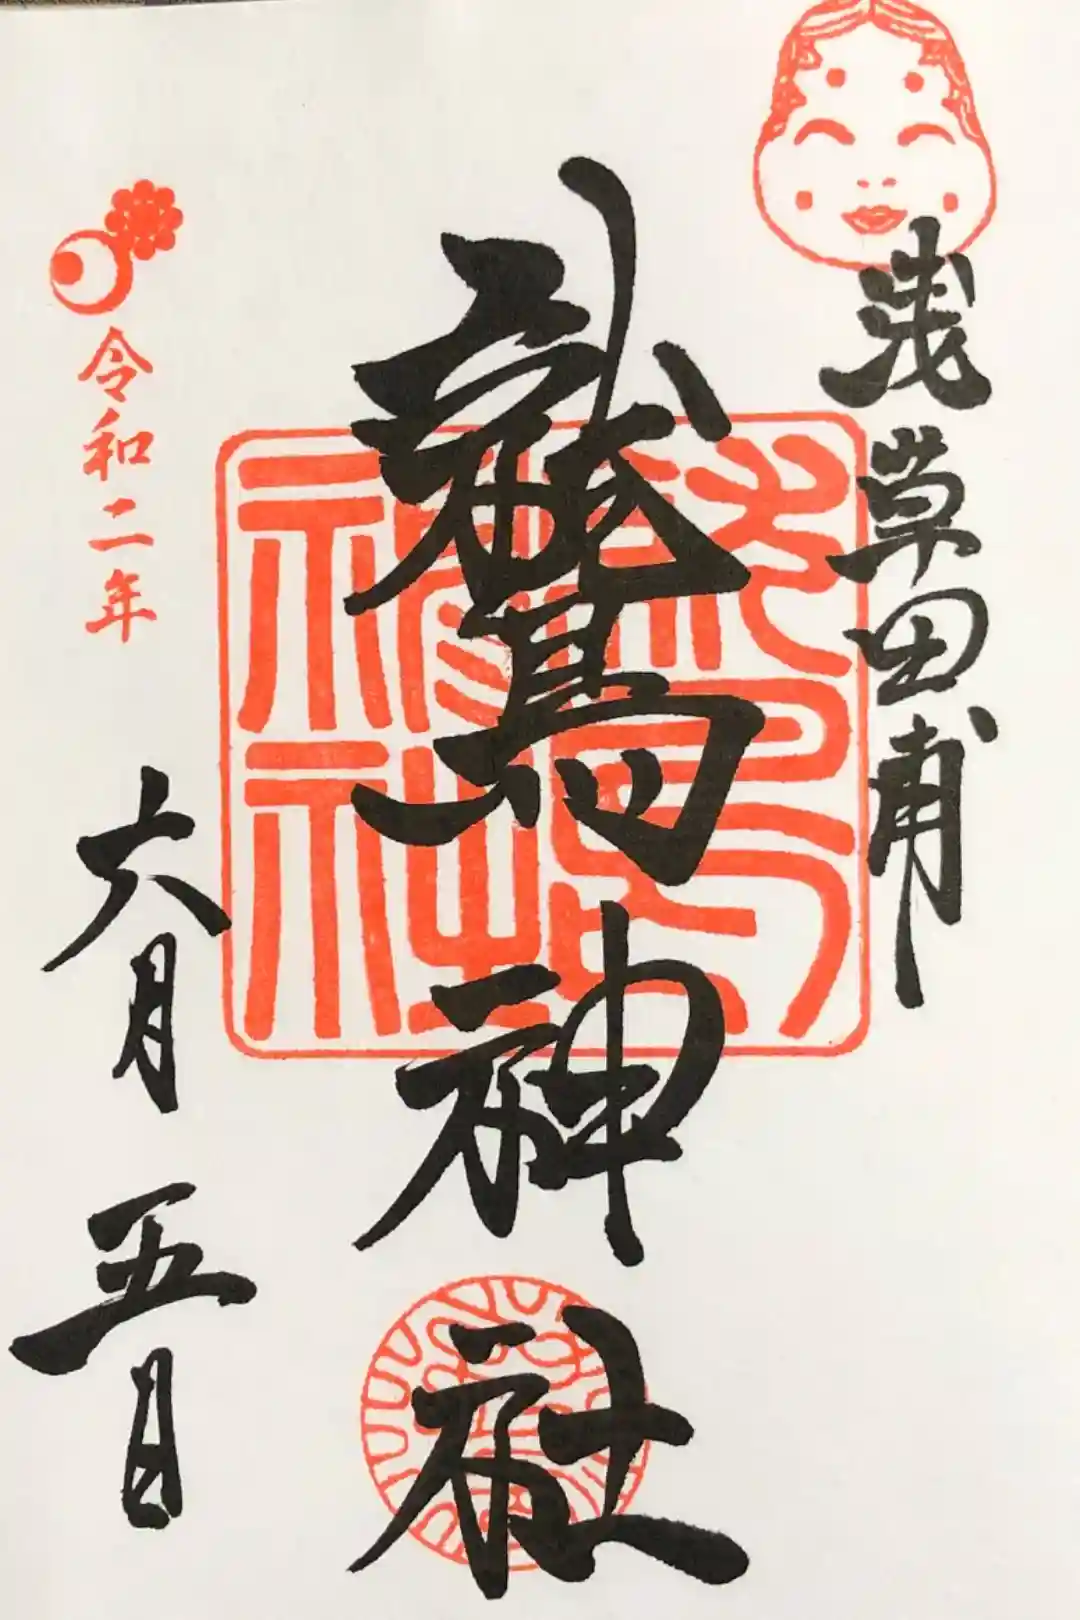 浅草田甫
鷲神社
令和二年
六月五日